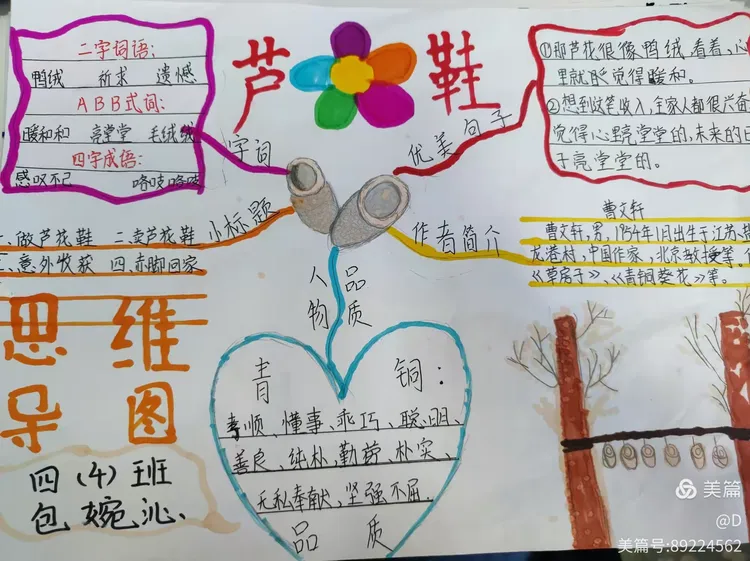 芦 鞋
二字词语:
鸭绒 祈求 遗憾
ABB式词:
暖和和 亮堂堂 毛绒绒
四字成语:
感叹不已 咯吱咯吱
字词
优美句子
①那芦花很像鸭绒,看着,心
里就
觉得暖和。
②想到这笔收入,全家人都很兴奋
觉得心里亮堂堂的,未来的日
子亮堂堂的。
小标题
一、做芦花鞋 二、卖芦花鞋
三、意外收获 四、赤脚回家
作者简介
曹文轩
曹文轩,男,1954年1日出生于江苏,盐
龙港村,中国作家,北京教授等,
《草房子》、《青铜葵花》等。
人物
品质
思维
导图
四(4)班
包婉沁、
青铜:
孝顺、懂事、乖巧、聪明、
善良、纯朴、勤劳、朴实、
无私奉献,坚强不屈.
品质
美篇
@D
美篇号:89224562